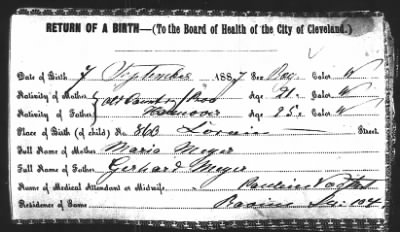 RETURN OF A BIRTH—(To the Board of Health of the City of Cleveland.)
Date of Birth 7 September 1887 Sex Boy Color W
Nativity of Mother Old Country Age 21 Color W
Nativity of Father Hannover Age 25 Color W
Place of Birth (of child) No. 863 Lorain Street
Full Name of Mother Maria Meyer
Full Name of Father Gerhard Meyer
Name of Medical Attendant or Midwife, Pauline
Residence of Same 104